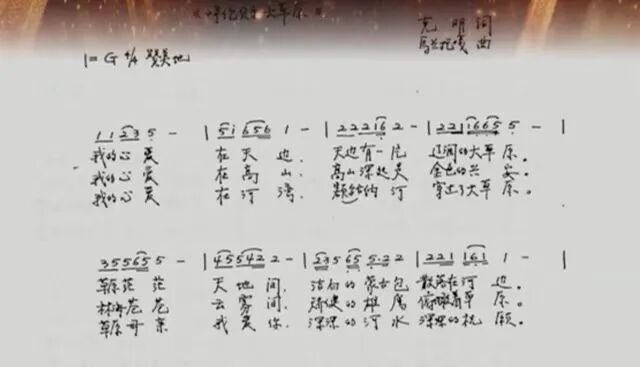 《呼伦贝尔大草原》
克明 词
1=G 4/4 赞美地
乌兰托嘎 曲
1 1 2 3 5 - | 5 1 6 5 6 1 - | 2 2 2 1 6 2 - | 2 2 1 1 6 6 5 5 - |
我的心爱 在天边. 天边有一片 辽阔的大草原。
我的心爱 在高山. 高山深处是 金色的兴安.
我的心爱 在河湾. 额尔古纳河 穿过了大草原。
3 5 5 6 5 5 - | 4 5 5 4 2 2 - | 2 3 5 6 5 5 · 2 2 | 2 2 1 1 6 1 1 - |
草原茫茫 天地间. 洁白的蒙古包 散落在河边。
林海苍苍 云雾间. 矫健的雄鹰 俯瞰着草原。
草原母亲 我爱你. 深深的河水 深深的祝愿。